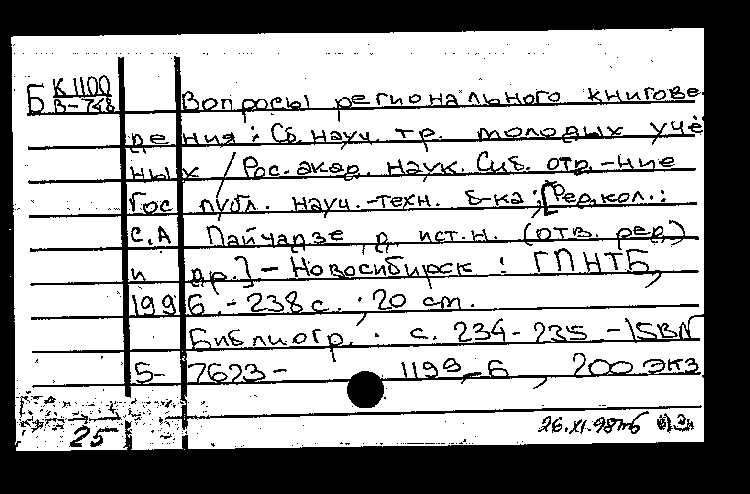 Б К 1100
В-748
Вопросы регионального книгове
дения : Сб. науч. тр. молодых учё
ных / Рос. акад. наук. Сиб. отр.-ние
Гос публ. науч.-техн. б-ка; [Ред.кол.:
С.А Пайчадзе, д. ист.н. (отв. ред.)
и др.] - Новосибирск : ГПНТБ,
1996. - 238 с. ; 20 cm.
Библиогр. : с. 234-235 - ISBN
5-7623-1199-6, 200 экз
25 26.XI.98